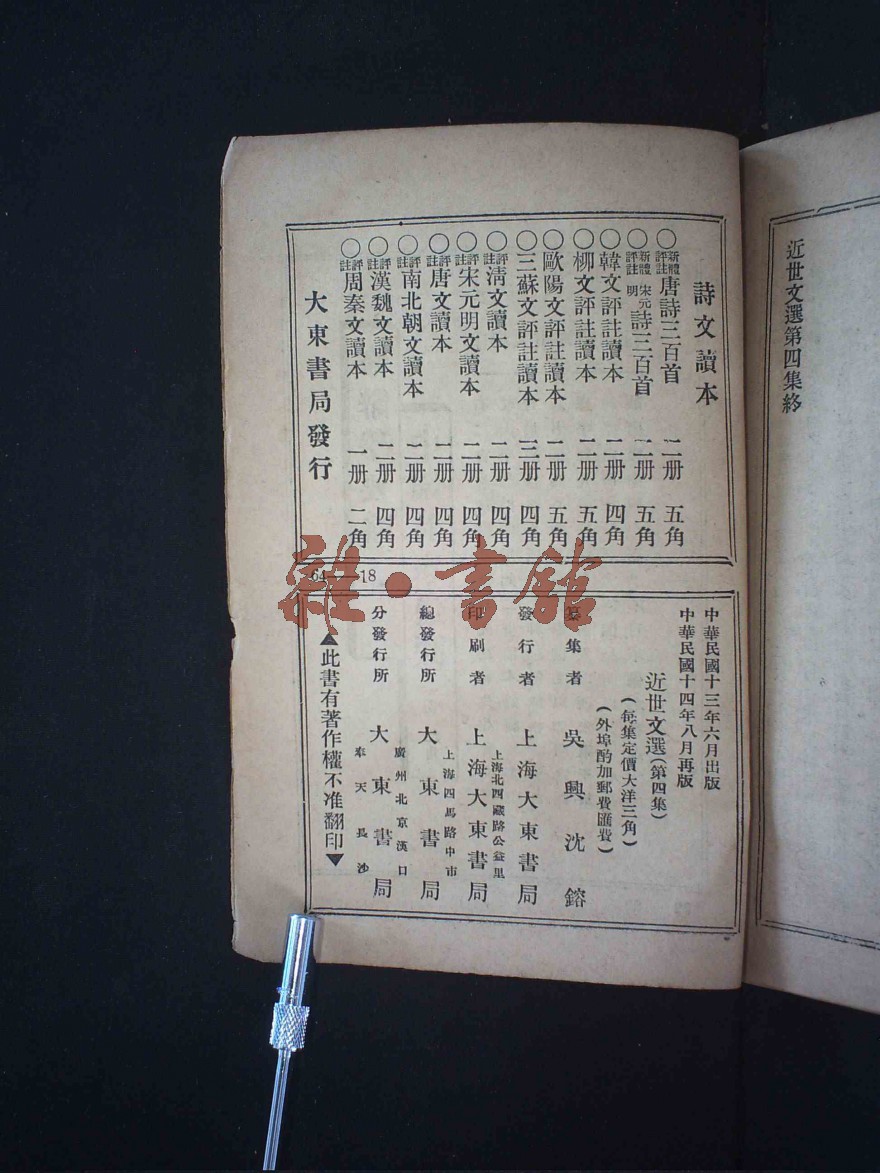 近世文選第四集終
詩文讀本
○新體評註唐詩三百首 二册 五角
○新體評註宋元明詩三百首 二册 五角
○韓文評註讀本 二册 四角
○柳文評註讀本 二册 五角
○歐陽文評註讀本 二册 五角
○三蘇文評註讀本 三册 四角
○評註清文讀本 二册 四角
○評註宋元明文讀本 二册 四角
○評註唐文讀本 二册 四角
○評註南北朝文讀本 二册 四角
○評註漢魏文讀本 二册 四角
○評註周秦文讀本 一册 二角
大東書局發行
64——18
中華民國十三年六月出版
中華民國十四年八月再版
近世文選(第四集)
(每集定價大洋三角)
(外埠酌加郵費匯費)
纂集者 吳興沈鎔
發行者 上海大東書局
上海北西藏路公益里
印刷者 上海大東書局
上海四馬路中市
總發行所 大東書局
廣州北京漢口
分發行所 大東書局
奉天長沙
▲此書有著作權不准翻印▼
雜·書館